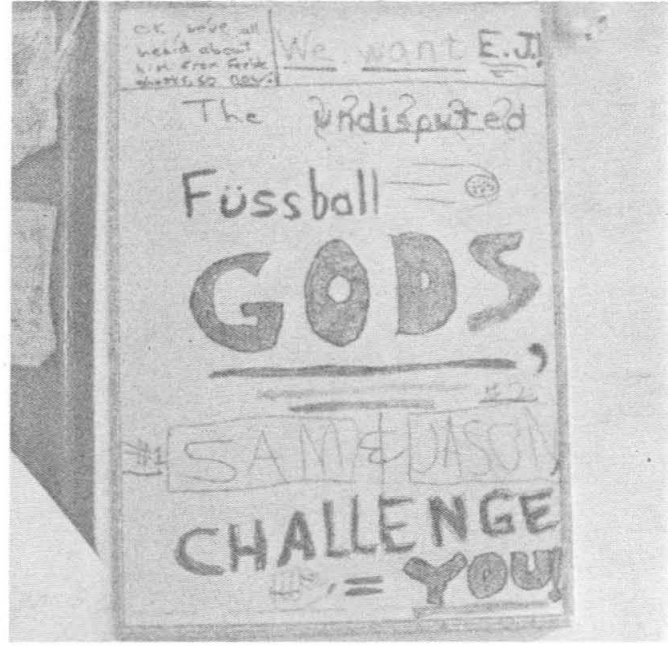 OK, we've all
heard about
him from
so now.
We want E.J!
The undisputed
Füssball
GODS,
#2
#1 SAM & JASON,
CHALLENGE
= YOU!